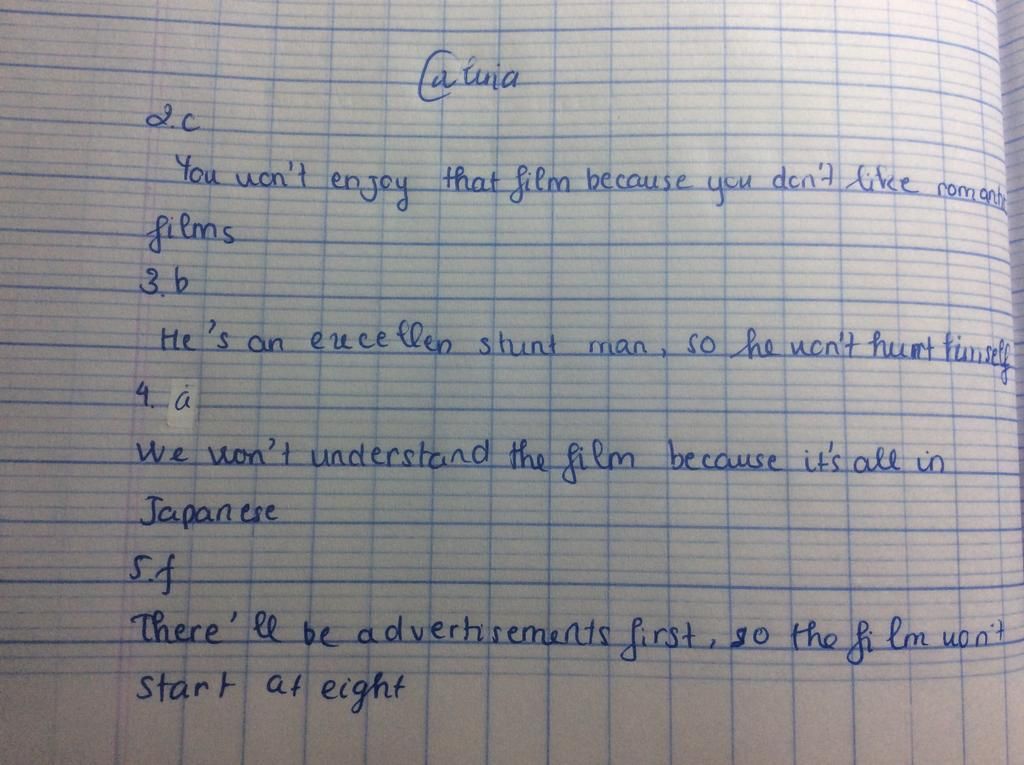 2.c
You won't enjoy that film because you don't like romantic
films
3.b
He's an excellen stunt man, so he won't hurt himself
4. a
We won't understand the film because it's all in
Japanese
5.f
There'll be advertisements first, so the film won't
start at eight